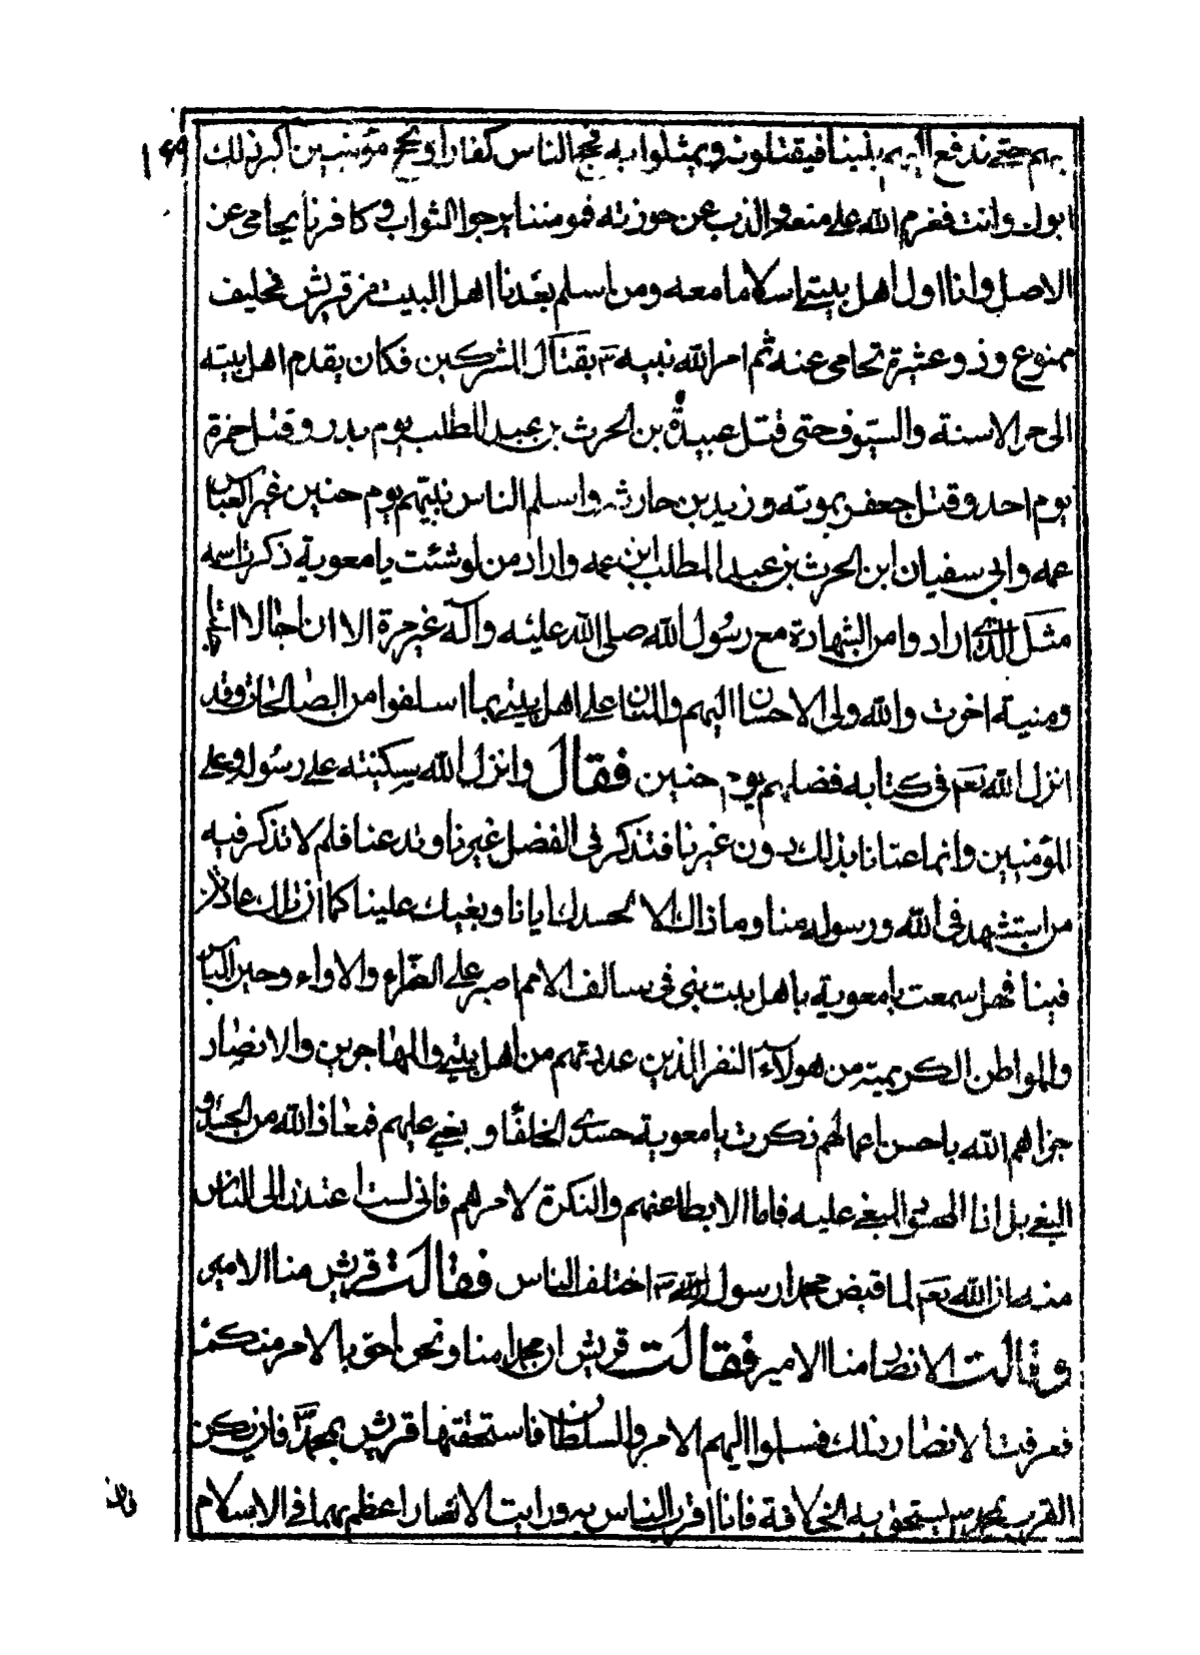 ١٤٩
بهم حتى ندفع اليهم نبينا فيقتلونه ويمثلوا به فجمع الناس كفارا ونحن مؤمنين اكبر ذلك
ابوك وانت فعزم الله على منعه والذب عن حوزته فمومننا يرجوا الثواب و كافرنا يحامى عن
الاصل وانا اول اهل بيتى اسلاما معه ومن اسلم بعدنا اهل البيت من قريش فحليف
ممنوع وذو عشيرة تحامى عنه ثم امر الله نبيه بقتال المشركين فكان يقدم اهل بيته
الى حر الاسنة والسيوف حتى قتل عبيدة بن الحرث بن عبد المطلب يوم بدر وقتل حمزة
يوم احد وقتل جعفر بموته وزيد بن حارثه واسلم الناس نبيهم يوم حنين غير العباس
عمه وابى سفيان ابن الحرث بن عبد المطلب ابن عمه واراد من لو شئت يا معوية ذكرت اسمه
مثل الذى اراد وامن الشهادة مع رسول الله صلى الله عليه وآله غير مرة الا ان اجالا
ومنية اخرت والله ولى الاحسان اليهم والمنان على اهل بيتى بما اسلفوا من الصالحات وقد
انزل الله تعم فى كتابه فضلهم يوم حنين فقال وانزل الله سكينته على رسوله وعلى
المؤمنين وانما عنانا بذلك دون غيرنا فتذكر فى الفضل غيرنا وتدعنا فلم لا تذكر فيه
من استشهد فى الله ورسوله منا وما ذاك الا لحسدك ايانا وبغيك علينا كما
فينا فهل سمعت يا معوية باهل بيت نبى فى سالف الامم اصبر على الضراء والاواء وحين الباس
والمواطن الكريمة من هولآء النفر الذين عددتهم من اهل بيتى والمهاجرين والانصار
جزاهم الله باحسن اعمالهم ذكرت يا معوية حسدى الخلفا و بغيى عليهم فمعاذ الله من الحسد و
البغى بل انا المحسود المبغى عليه فاما الابطا عنهم والنكرة لامرهم فانى لست اعتذر الى الناس
منه ان الله تعم لما قبض محمدا رسول الله اختلف الناس فقالت قريش منا الامير
وقالت الانصار منا الامير فقالت قريش ان محمدا منا ونحن احق بالامر منكم
فعرفت الانصار ذلك فسلموا اليهم الامر والسلطان فاستحقتها قريش بمحمد فان يكن
القرب بمحمد يستحق به الخلافة فانا اقرب الناس به ورايت الانصار اعظم سهما فى الاسلام